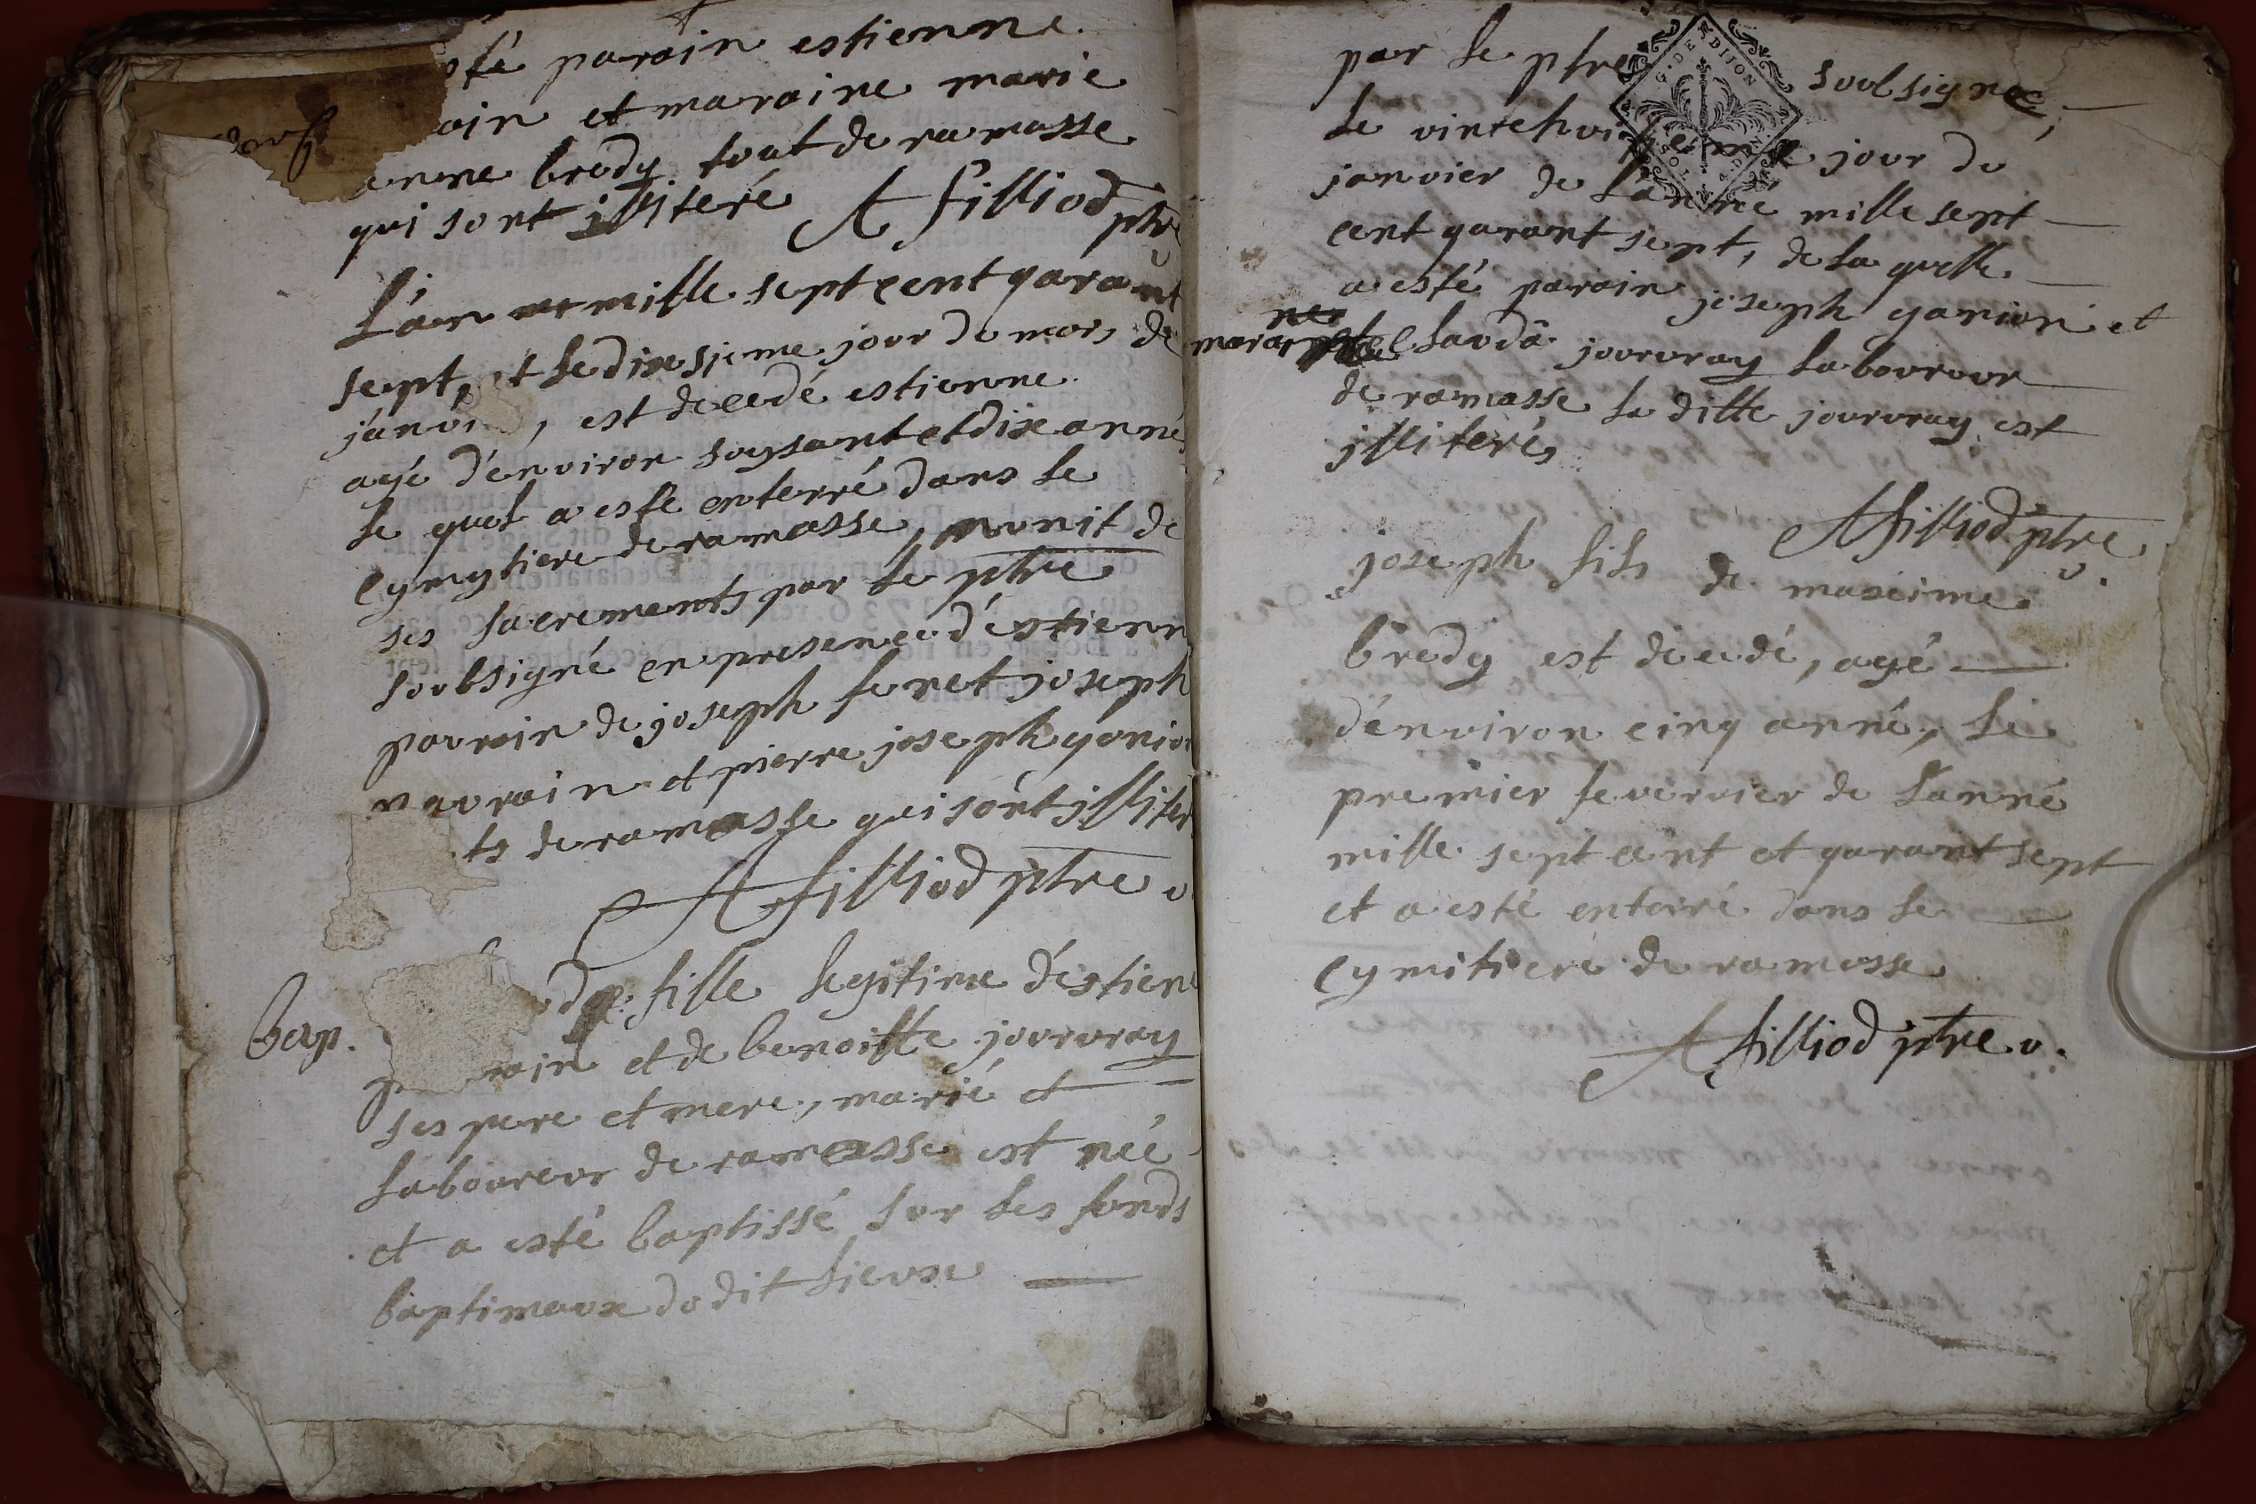 sté parain estienne
ain et maraine marie
enne bredy tout de ramasse
qui sont illiteré A filliod ptre
L'an mille sept cent qarant
sept, et le dixesieme jour du mois de
janvi , est decedé estienne
agé d'environ soysant et dix anné
le quel a este enterré dans le
cymytiere de ramasse, munit de
ses sacrements par le ptre
soubsigné en presence d'estienn
pourain de joseph feret joseph
vavrain et pierre joseph ganion
ts de ramasse qui sont illiter
A filliod ptre v
Bap.
dy fille legitime d'estiene
rain et de benoitte jourvray
ses pere et mere, marié et
laboureur de ramasse est née
et a esté baptissé sur les fonds
baptimaux dudit lieux
par le ptre soubsigné,
G. DE DIJON
le vintehuitieme jour du
janvier de l'anné mille sept
cent qarant sept, de la quelle
a esté parain joseph ganion et
marai claudâ jourvray laboureur
de ramasse la ditte jourvray est
illiteré,
A filliod ptre v.
joseph fils de maxime
bredy est decedé, agé
d'environ cinq anné, le
premier feverier de l'anné
mille sept cent et qarant sept
et a esté enterré dans le
cymitiere de ramasse
A filliod ptre v.